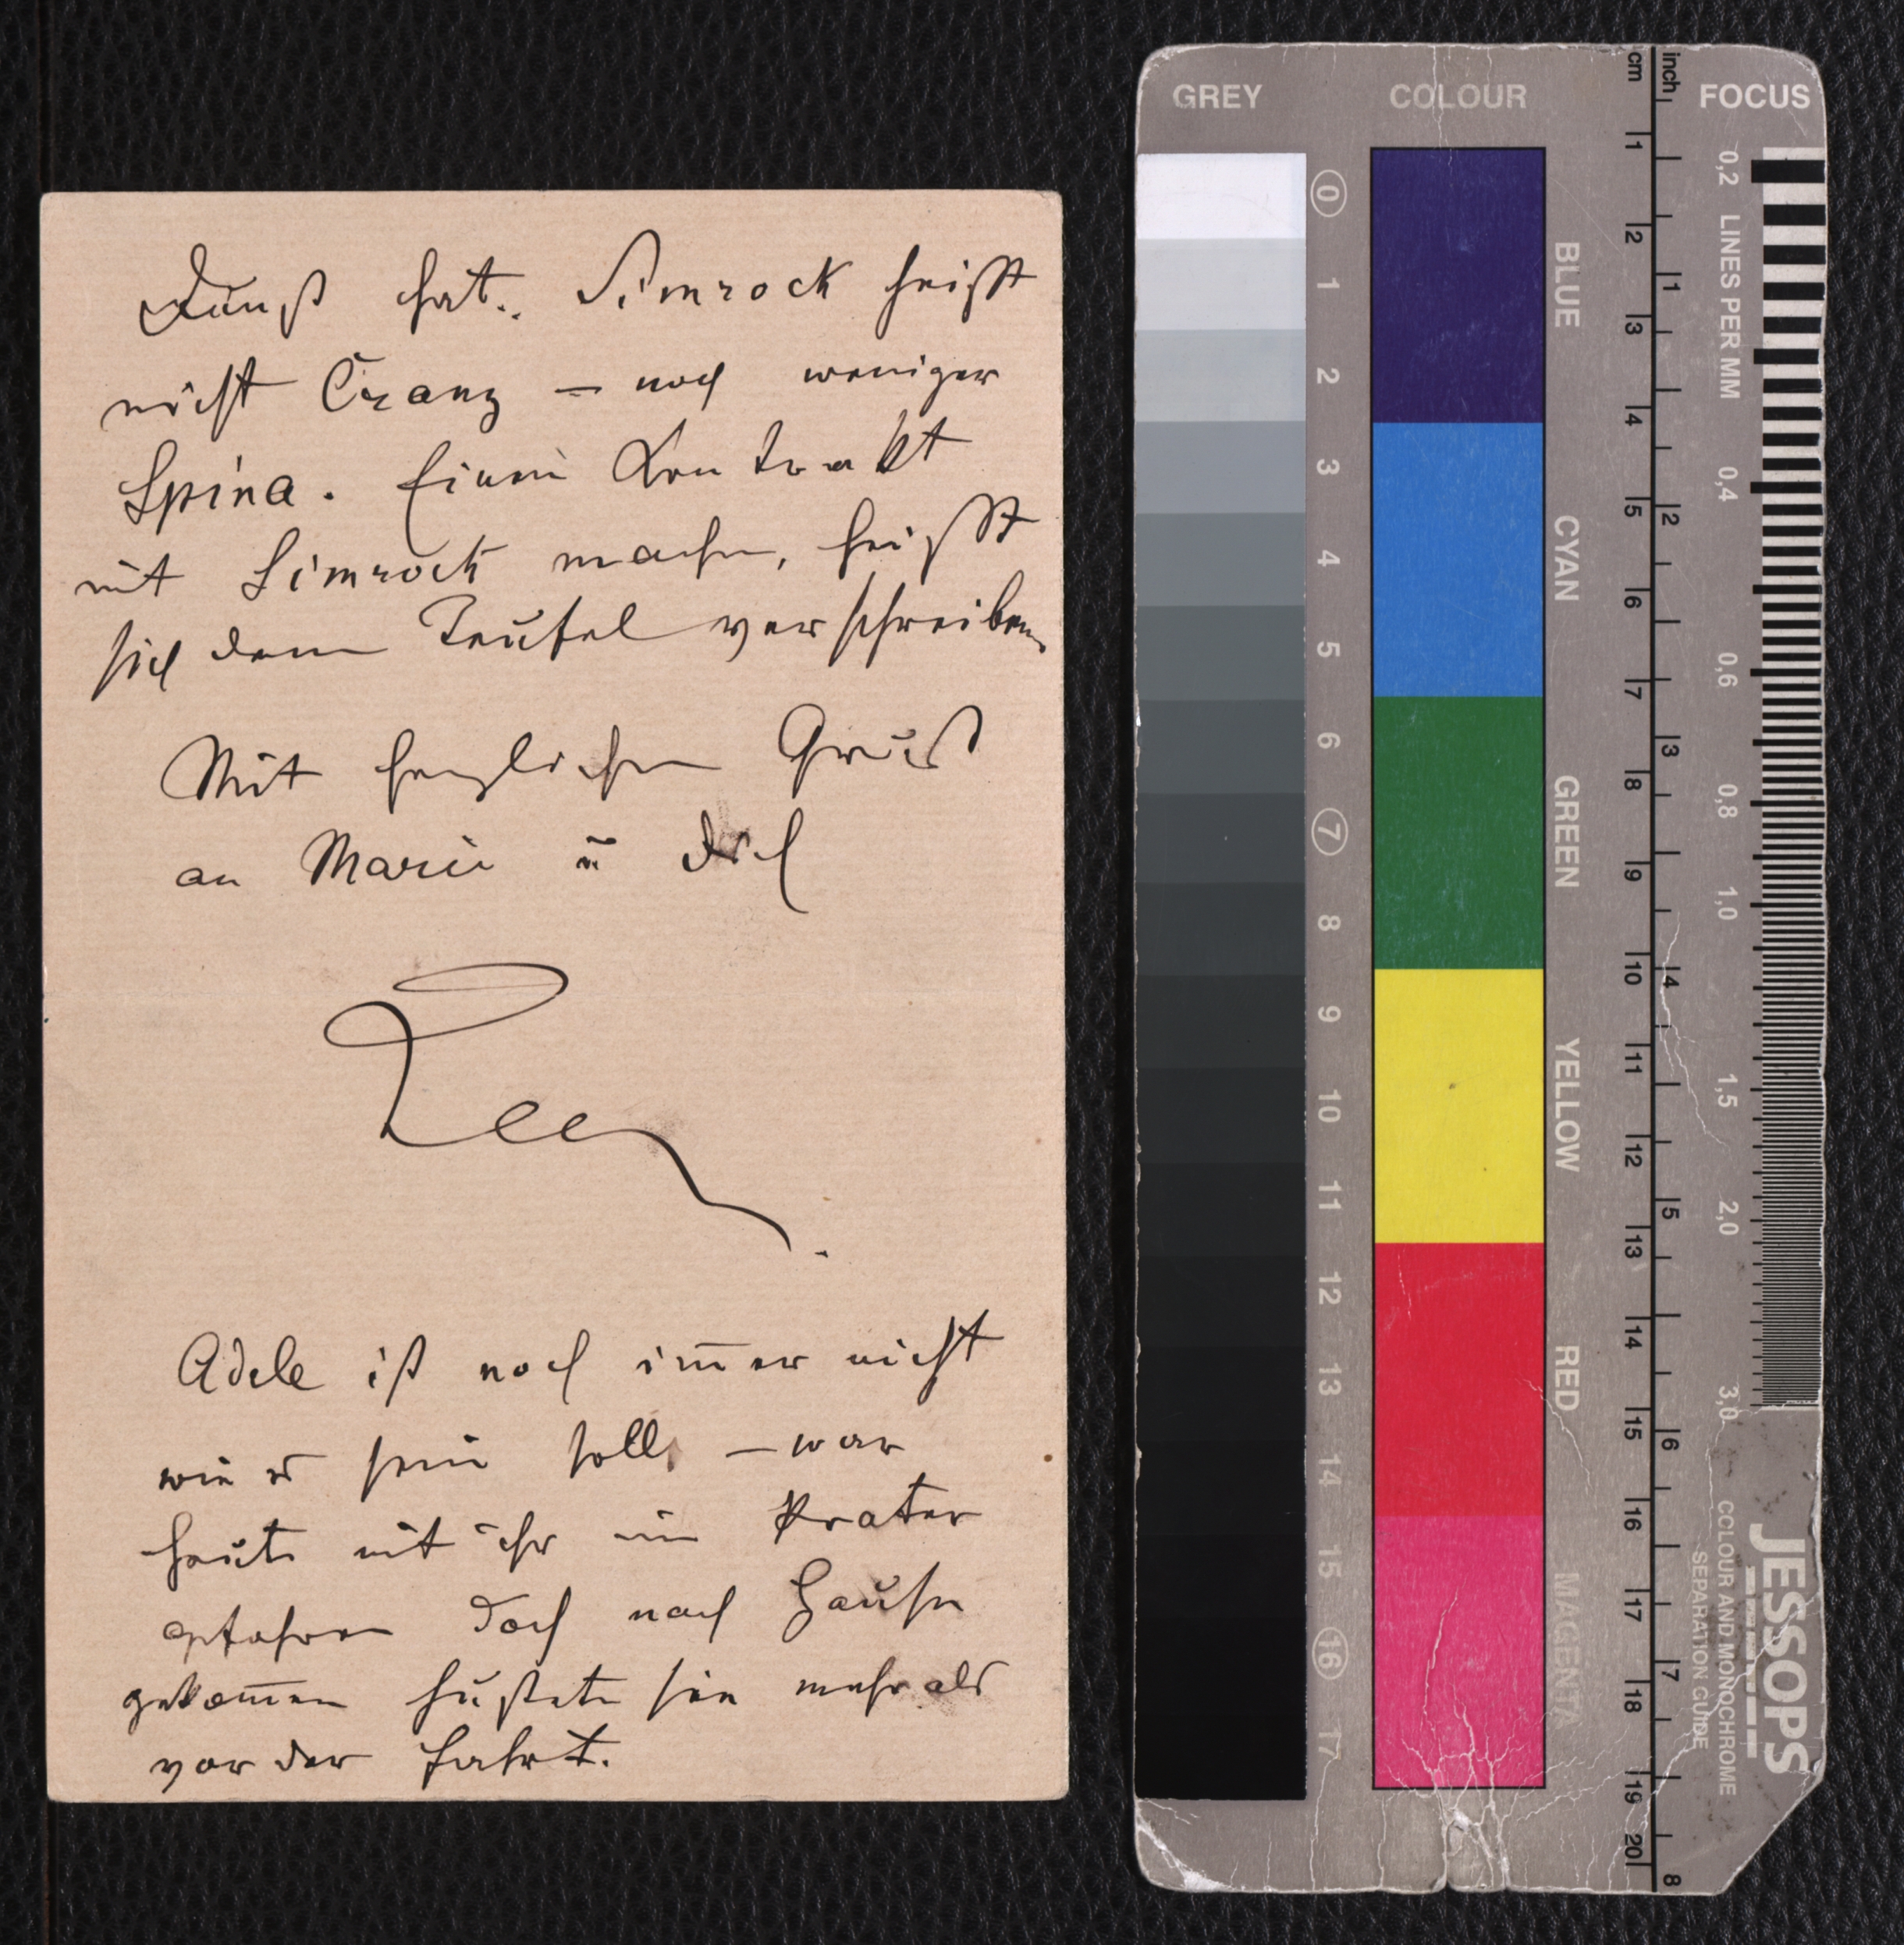 Dunst hat. Simrock heißt
nicht Cranz – noch weniger
Spina. Einen Kontrakt
mit Simrock machen, heißt
sich dem Teufel verschreiben
Mit herzlichen Gruß
an Marie ū dich
Adele ist noch im̄er nicht
wie es sein soll, – war
heute mit ihr im Prater
gefahren doch nach Hause
gekom̄en hustete sie mehr als
vor der Fahrt.
GREY COLOUR cm inch FOCUS
0 1 2 3 4 5 6 7 8 9 10 11 12 13 14 15 16 17
BLUE
CYAN
GREEN
YELLOW
RED
MAGENTA
1 2 3 4 5 6 7 8 9 10 11 12 13 14 15 16 17 18 19 20
1 2 3 4 5 6 7 8
0,2 LINES PER MM 0,4 0,6 0,8 1,0 1,5 2,0 3,0
JESSOPS
COLOUR AND MONOCHROME
SEPARATION GUIDE